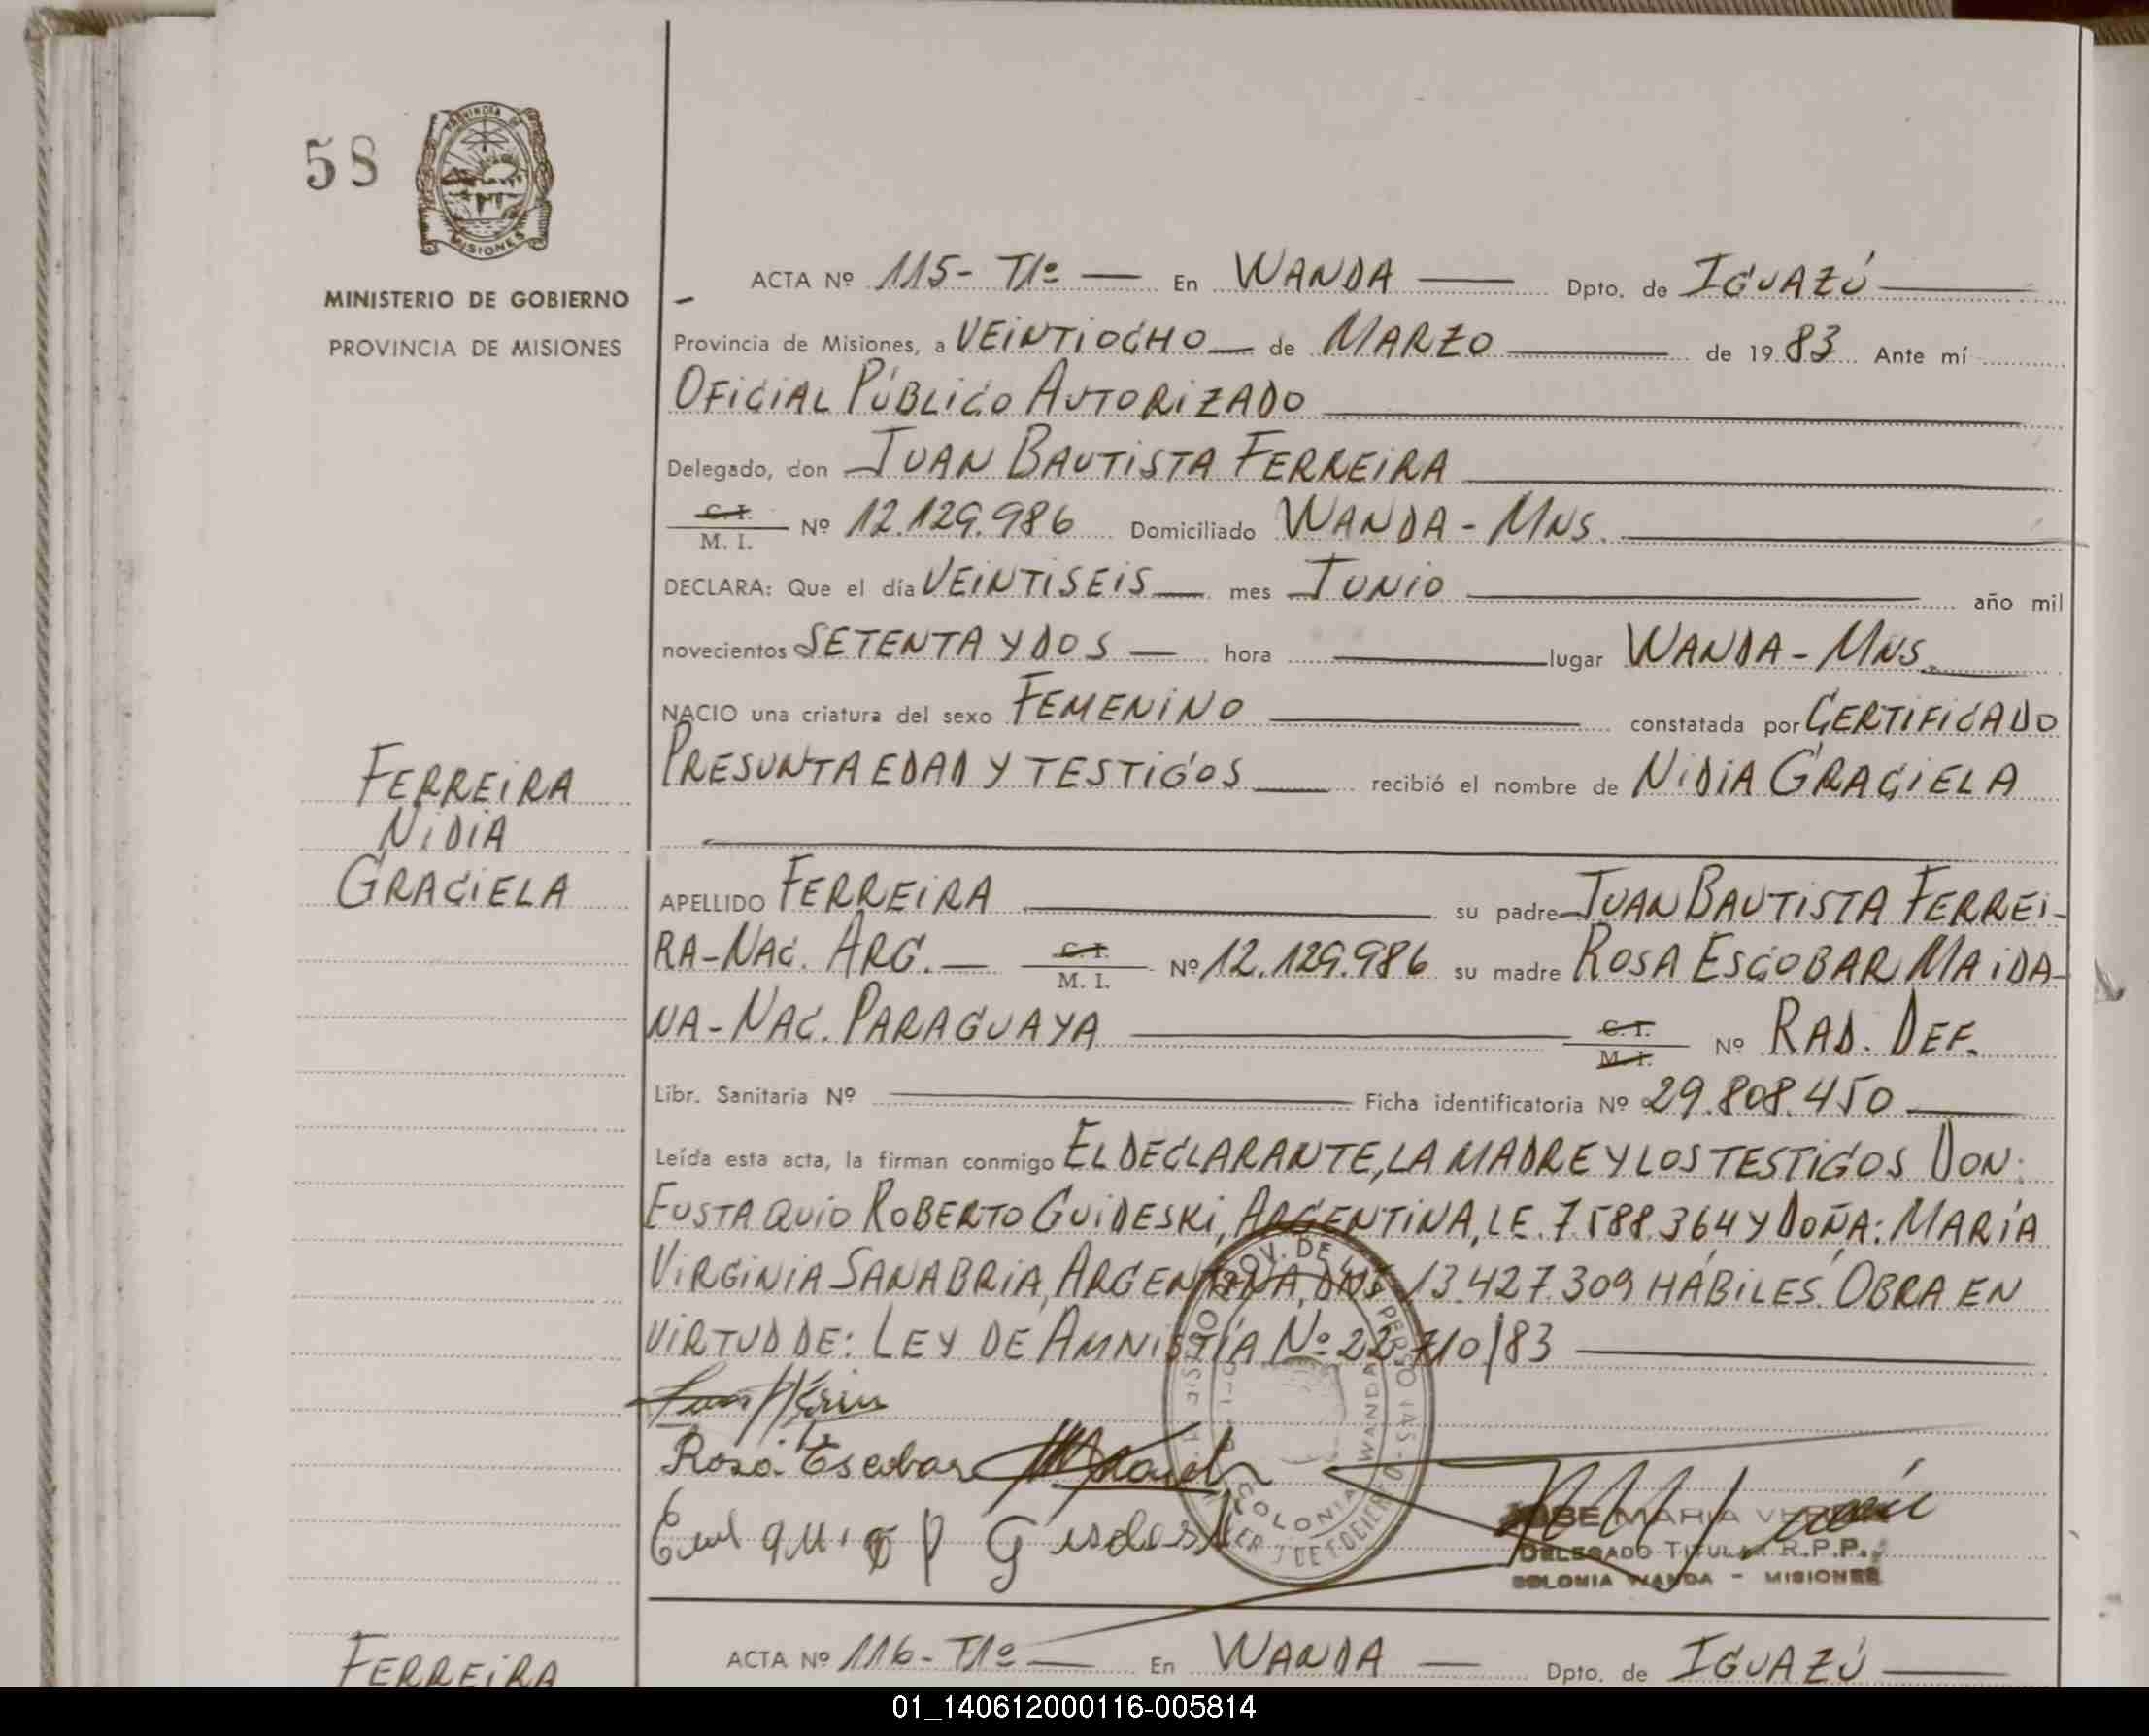 58
PROVINCIA DE
MISIONES
MINISTERIO DE GOBIERNO
PROVINCIA DE MISIONES
ACTA Nº 115- T1º — En WANDA — Dpto. de IGUAZÚ
Provincia de Misiones, a VEINTIOCHO de MARZO de 1983 Ante mí
OFICIAL PÚBLICO AUTORIZADO
Delegado, don JUAN BAUTISTA FERREIRA
C. I. M. I. Nº 12.129.986 Domiciliado WANDA - MNS.
DECLARA: Que el día VEINTISEIS mes JUNIO año mil
novecientos SETENTA Y DOS — hora lugar WANDA - MNS.
NACIO una criatura del sexo FEMENINO constatada por CERTIFICADO
PRESUNTA EDAD Y TESTIGOS recibió el nombre de NIDIA GRACIELA
FERREIRA
NIDIA
GRACIELA
APELLIDO FERREIRA su padre JUAN BAUTISTA FERREI-
RA - NAC. ARG. — C. I. M. I. Nº 12.129.986 su madre ROSA ESCOBAR MAIDA-
NA - NAC. PARAGUAYA C. I. M. I. Nº RAD. DEF.
Libr. Sanitaria Nº Ficha identificatoria Nº 29.808.450
Leída esta acta, la firman conmigo EL DECLARANTE, LA MADRE Y LOS TESTIGOS DON:
EUSTAQUIO ROBERTO GUIDESKI, ARGENTINA, LE. 7.588.364 Y DOÑA: MARÍA
VIRGINIA SANABRIA, ARGENTINA, DNI 13.427.309 HÁBILES. OBRA EN
VIRTUD DE: LEY DE AMNISTÍA Nº 22.710/83
Rosa Escobar
COLONIA WANDA
JOSE MARIA
DELEGADO TITULAR R.P.P.
COLONIA WANDA - MISIONES
FERREIRA
ACTA Nº 116- T1º — En WANDA — Dpto. de IGUAZÚ
01_140612000116-005814